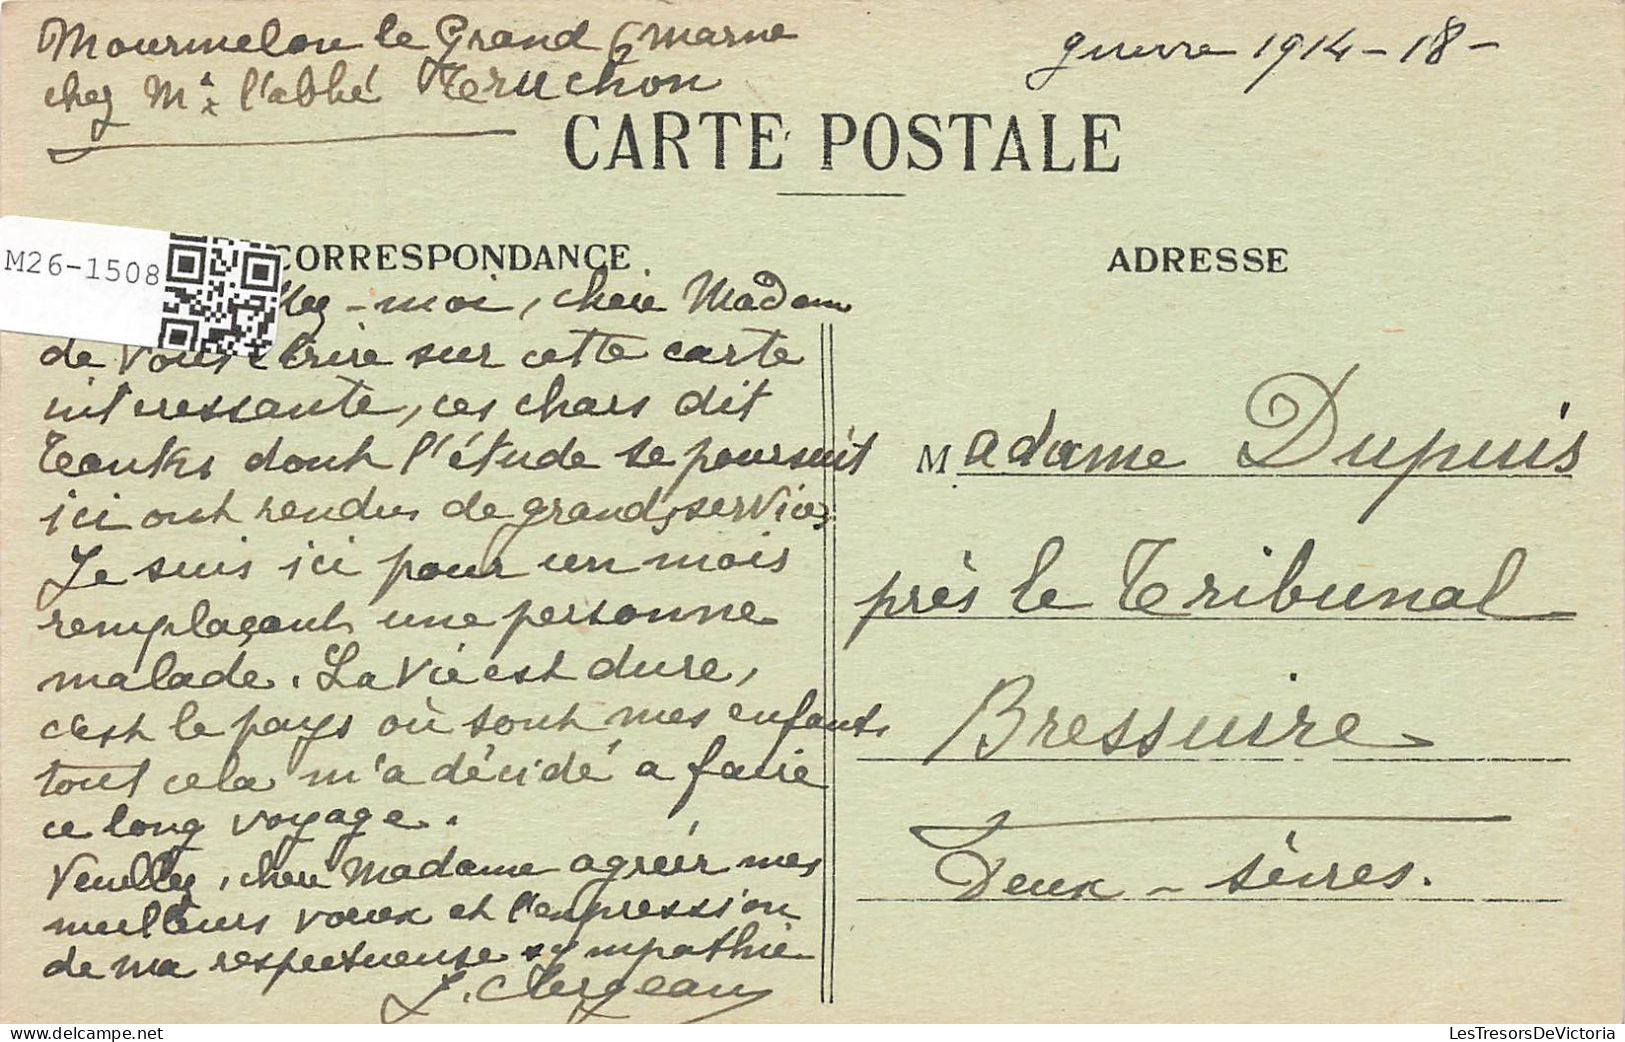 Mourmelon le Grand (Marne
guerre 1914-18-
chez Mr l'abbé Teruchon
CARTE POSTALE
M26-1508
CORRESPONDANCE
ADRESSE
llez-moi, chère Madam
de vous écrire sur cette carte
intéressante, ces chars dit
Tanks dont l'étude se poursuit
ici ont rendus de grands services
Je suis ici pour un mois
remplaçant une personne
malade. La vie est dure,
c'est le pays où sont mes enfants
tout cela m'a décidé a faire
ce long voyage.
Veuillez, chère Madame agréér mes
meilleurs voeux et l'expression
de ma respectueuse sympathie
J. Clergeau
Madame Dupuis
près le Tribunal
Bressuire
Deux-sèvres.
LesTresorsDeVictoria